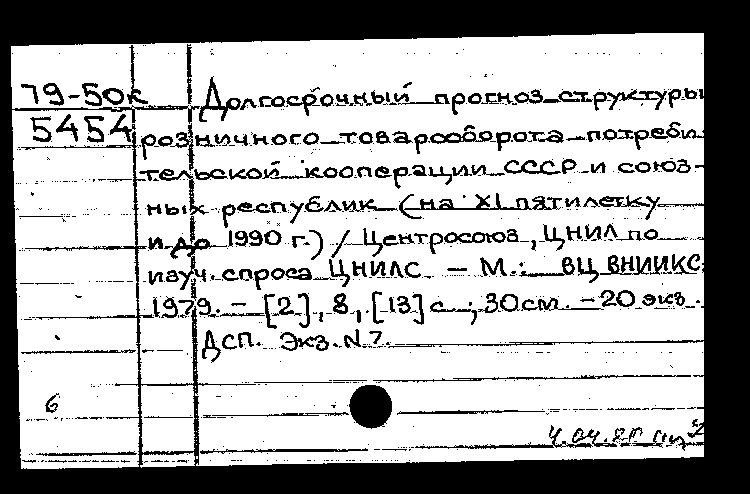 79-50к Долгосрочный прогноз структуры
5454 розничного товарооборота потреби
тельской кооперации СССР и союз-
ных республик (на XI пятилетку
и до 1990 г.) / Центросоюз, ЦНИЛ по
изуч. спроса ЦНИЛС. — М.: ВЦ ВНИИКС,
1979. — [2], 8, [13] с. ; 30 см. — 20 экз.
ДСП. Экз. N 7.
6
4.04.80